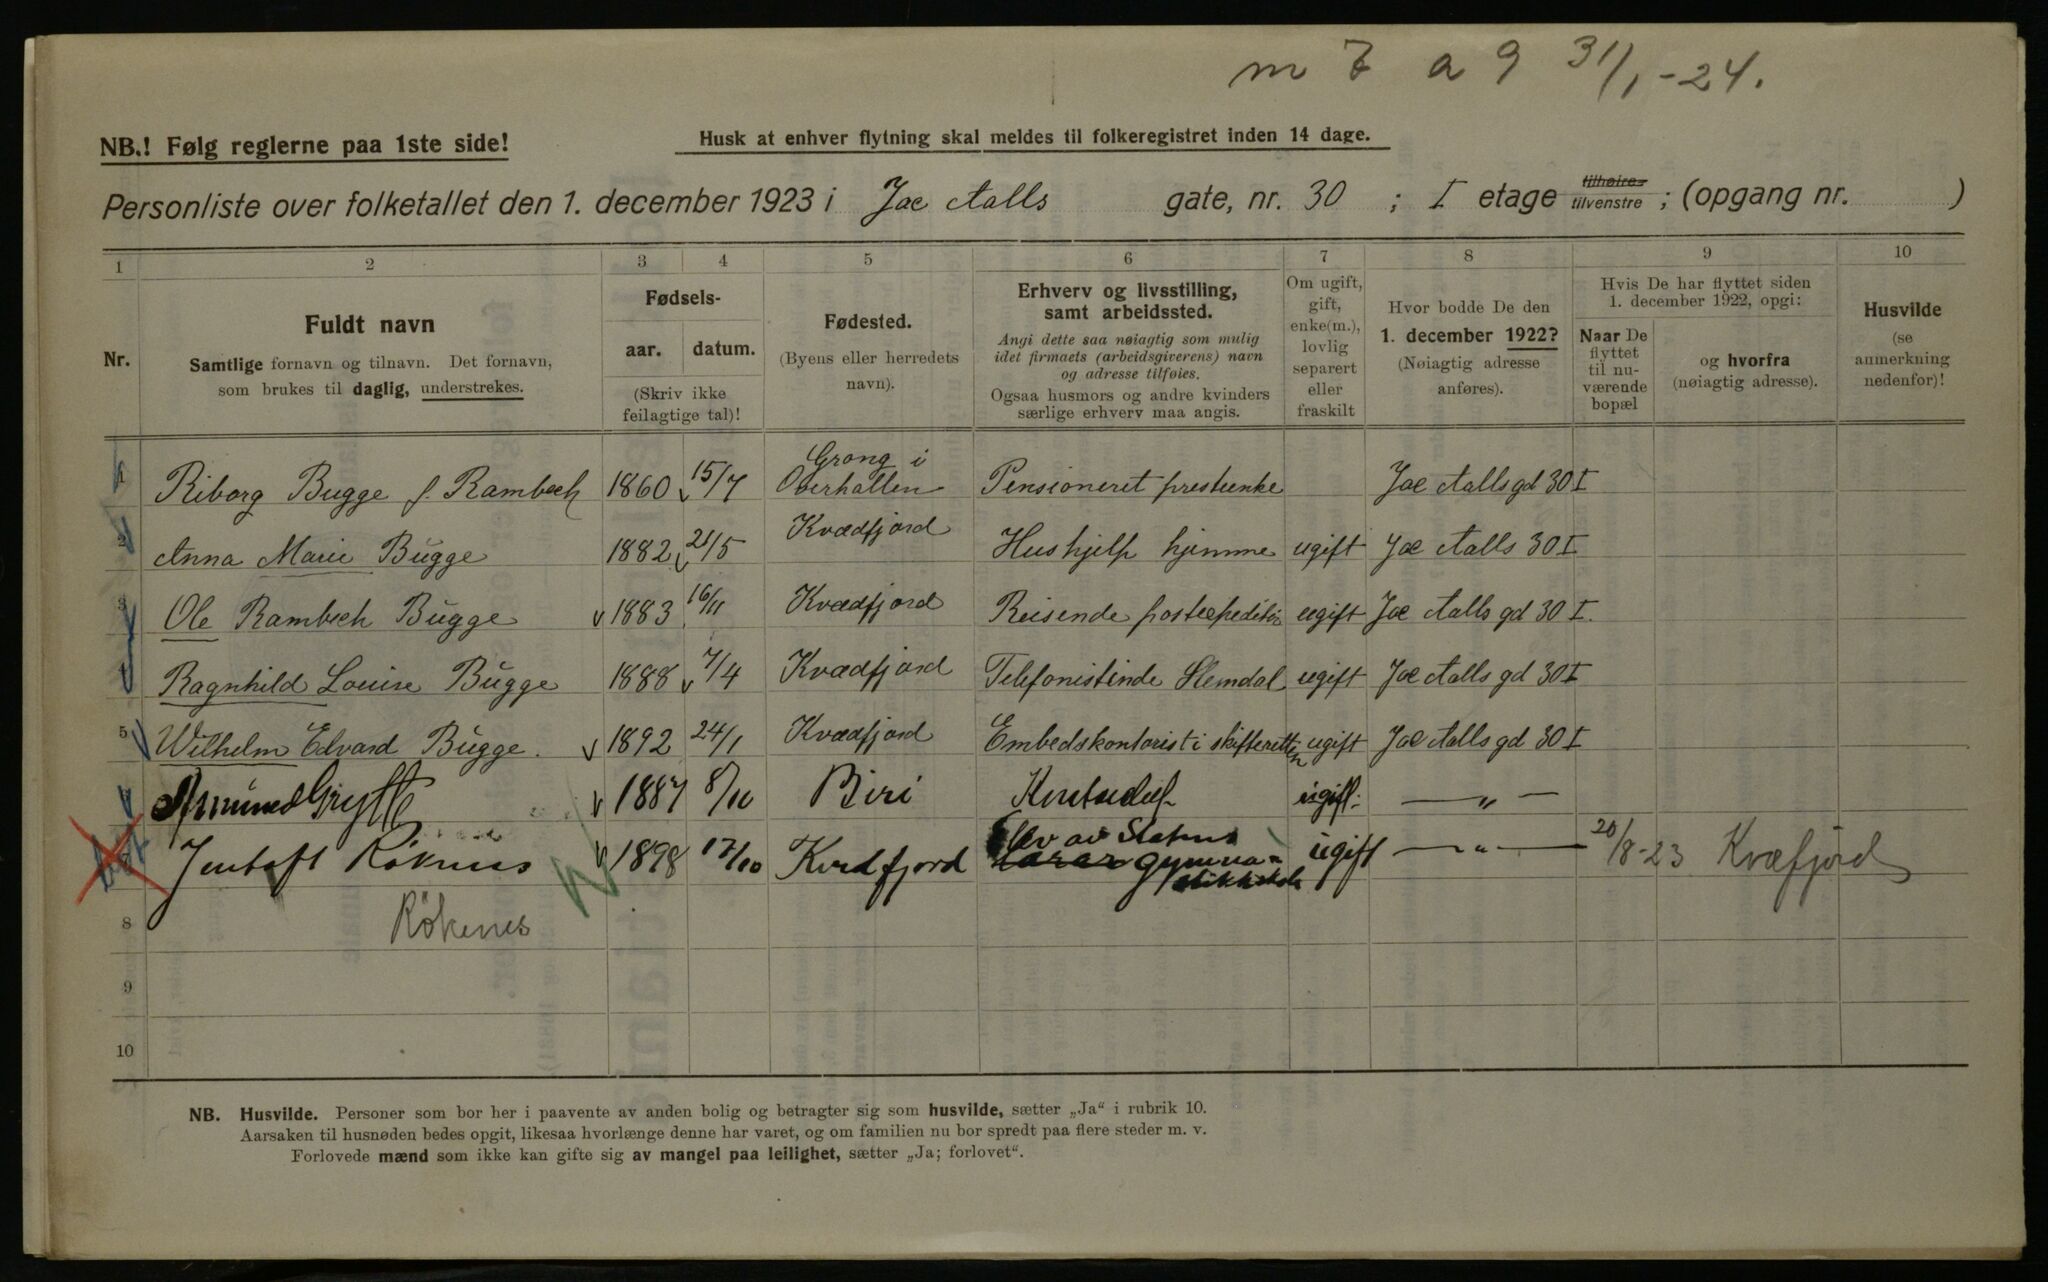 m 7 a 9 31/1-24.
NB.! Følg reglerne paa 1ste side!
Husk at enhver flytning skal meldes til folkeregistret inden 14 dage.
Personliste over folketallet den 1. december 1923 i Jac Aalls gate, nr. 30 ; I etage tilhøires tilvenstre ; (opgang nr. )
1 2 3 4 5 6 7 8 9 10
Nr.
Fuldt navn
Samtlige fornavn og tilnavn. Det fornavn,
som brukes til daglig, understrekes.
Fødsels-
aar. datum.
(Skriv ikke
feilagtige tal)!
Fødested.
(Byens eller herredets
navn).
Erhverv og livsstilling,
samt arbeidssted.
Angi dette saa nøiagtig som mulig
idet firmaets (arbeidsgiverens) navn
og adresse tilføies.
Ogsaa husmors og andre kvinders
særlige erhverv maa angis.
Om ugift,
gift,
enke(m.),
lovlig
separert
eller
fraskilt
Hvor bodde De den
1. december 1922?
(Nøiagtig adresse
anføres).
Hvis De har flyttet siden
1. december 1922, opgi:
Naar De
flyttet
til nu-
værende
bopæl
og hvorfra
(nøiagtig adresse).
Husvilde
(se
anmerkning
nedenfor)!
1 Riborg Bugge f. Rambech 1860 15/7 Grong i Overhallen Pensioneret presteenke Jac Aallsgd 30 I
2 Anna Marie Bugge 1882 21/5 Kvædfjord Hushjelp hjemme ugift Jac Aalls 30 I
3 Ole Rambech Bugge 1883 16/11 Kvædfjord Reisende postexpeditør ugift Jac Aalls gd 30 I.
Ragnhild Louise Bugge 1888 7/4 Kvædfjord Telefonistinde Slemdal ugift Jac Aalls gd 30 I
5 Wilhelm Edvard Bugge. 1892 24/1 Kvædfjord Embedskontorist i skifteretten ugift Jac Aalls gd 30 I
Amund Grytte 1887 8/10 Biri ugift. — „ —
Jentoft Røknes 1898 17/10 Kvedfjord Elev av Statens gymna- stikkskole ugift — „ — 20/8-23 Kvæfjord
8 Røkenes
9
10
NB. Husvilde. Personer som bor her i paavente av anden bolig og betragter sig som husvilde, sætter „Ja“ i rubrik 10.
Aarsaken til husnøden bedes opgit, likesaa hvorlænge denne har varet, og om familien nu bor spredt paa flere steder m. v.
Forlovede mænd som ikke kan gifte sig av mangel paa leilighet, sætter „Ja; forlovet“.